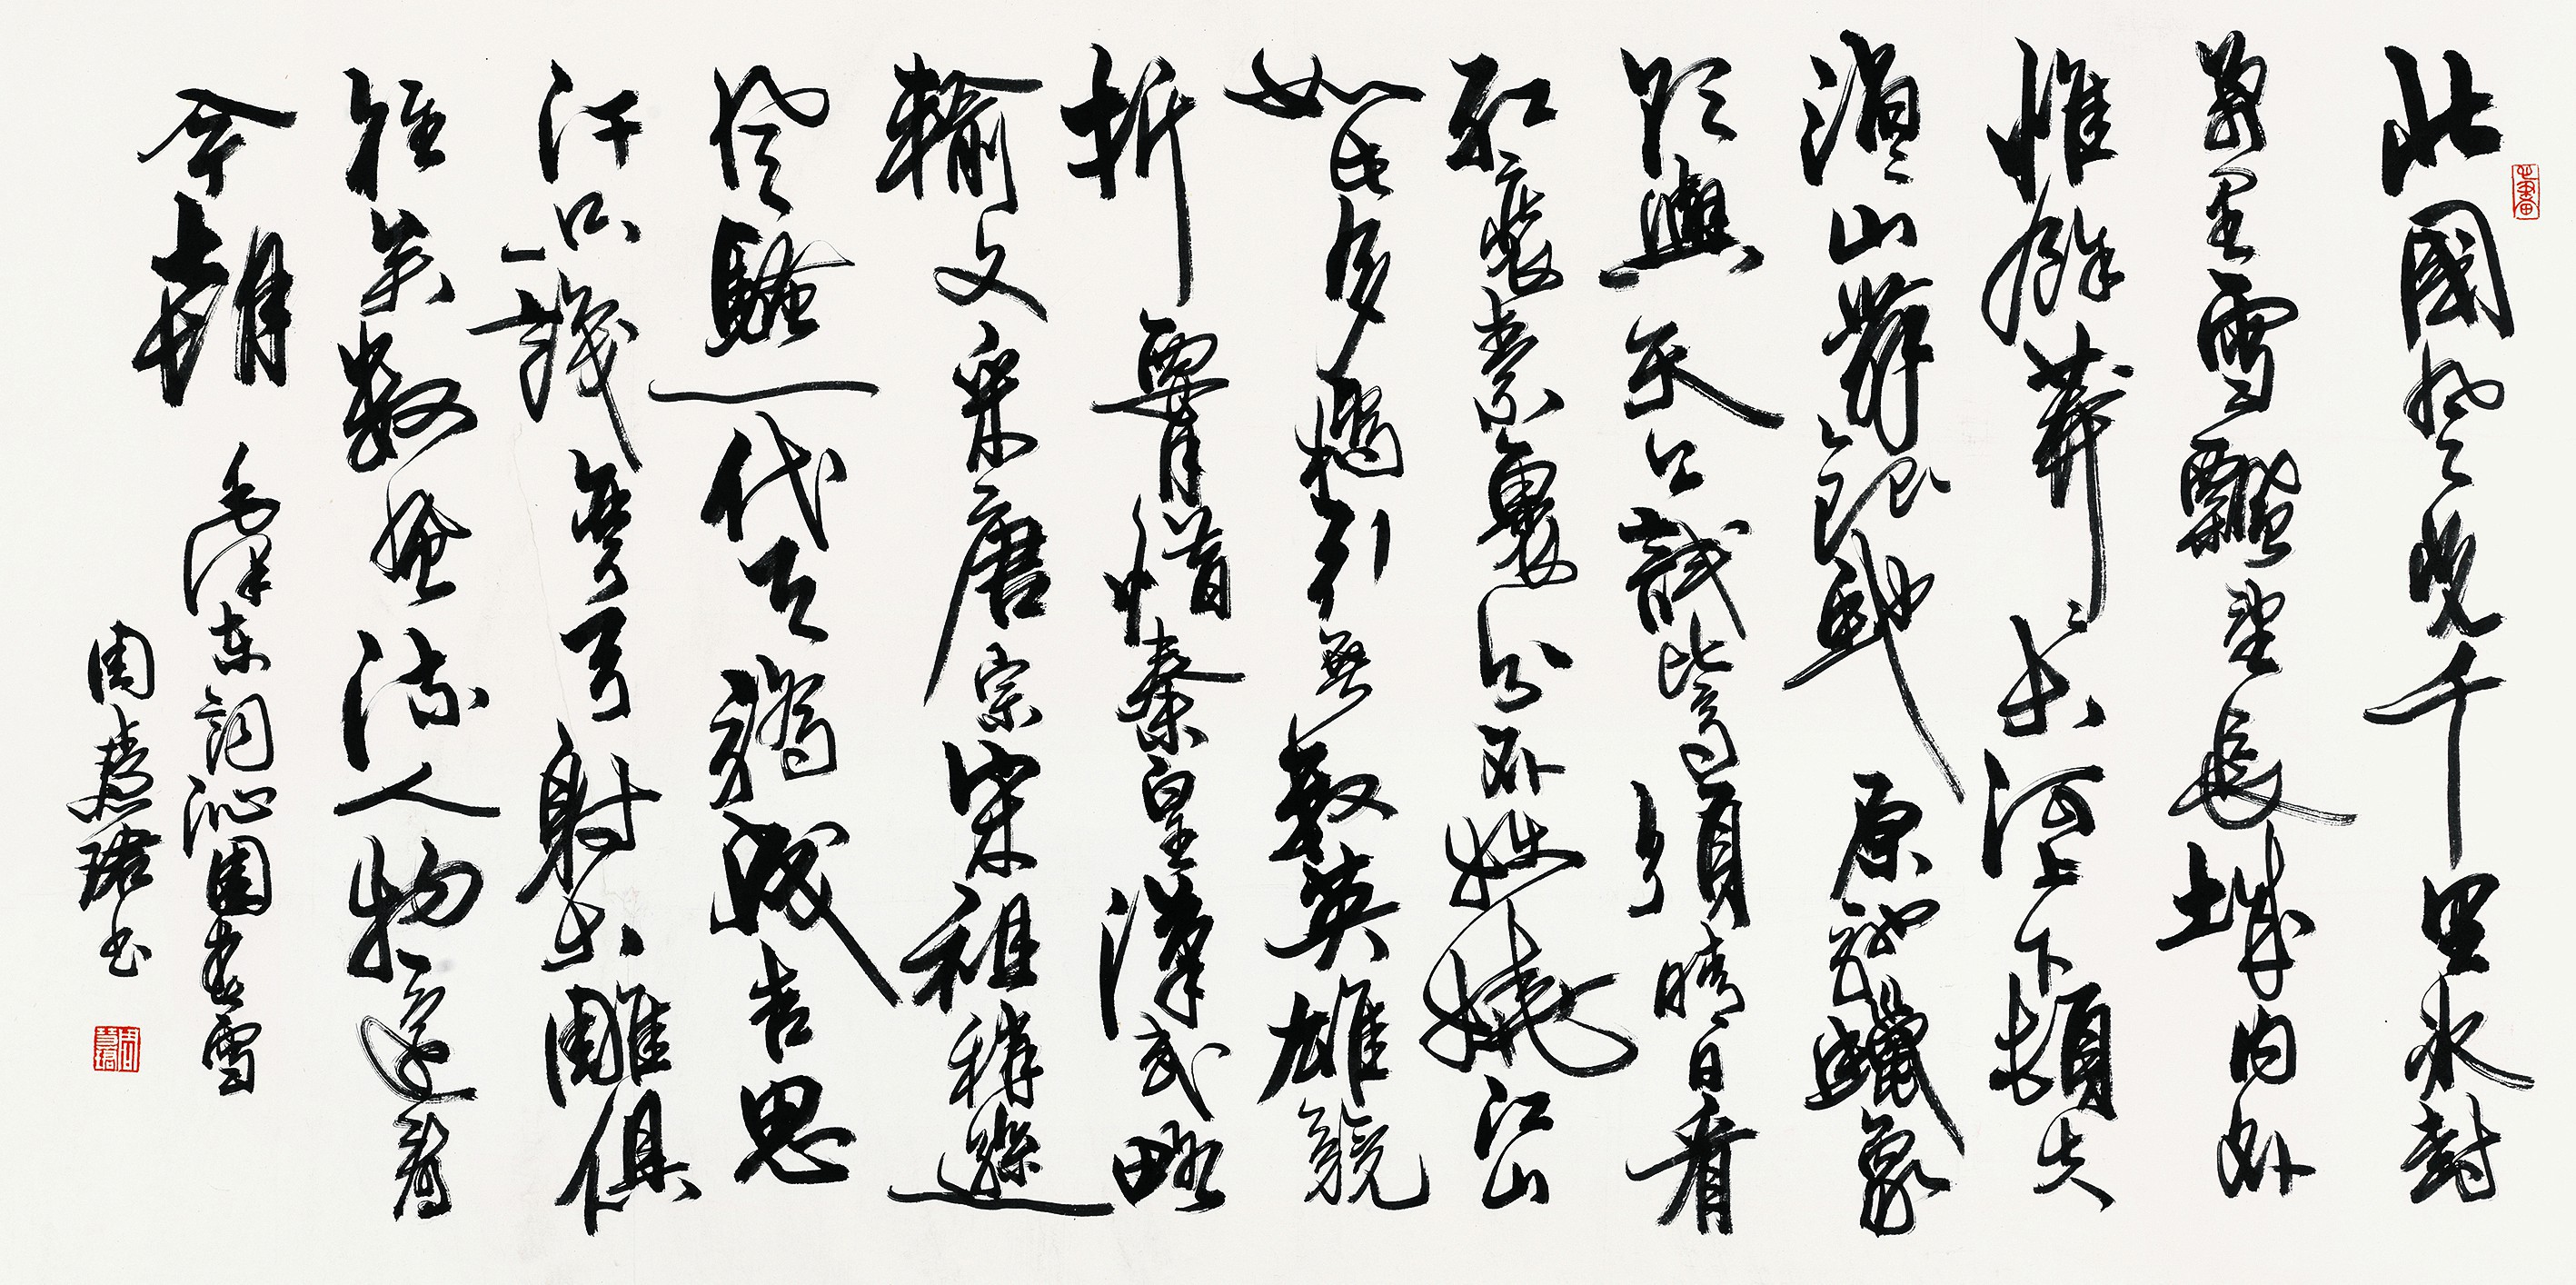 北國風光千里冰封
萬里雪飄望長城內外
惟餘莽〻大河上下頓失
滔〻山舞銀蛇原馳蠟象
欲與天公試比高須晴日看
紅裝素裹分外妖嬈江山
如此多嬌引無數英雄競
折腰惜秦皇漢武略
輸文采唐宗宋祖稍遜
風騷一代天驕成吉思
汗只識彎弓射大雕俱
往矣數風流人物還看
今朝 毛澤东詞沁園春雪
周慧珺书
周慧珺